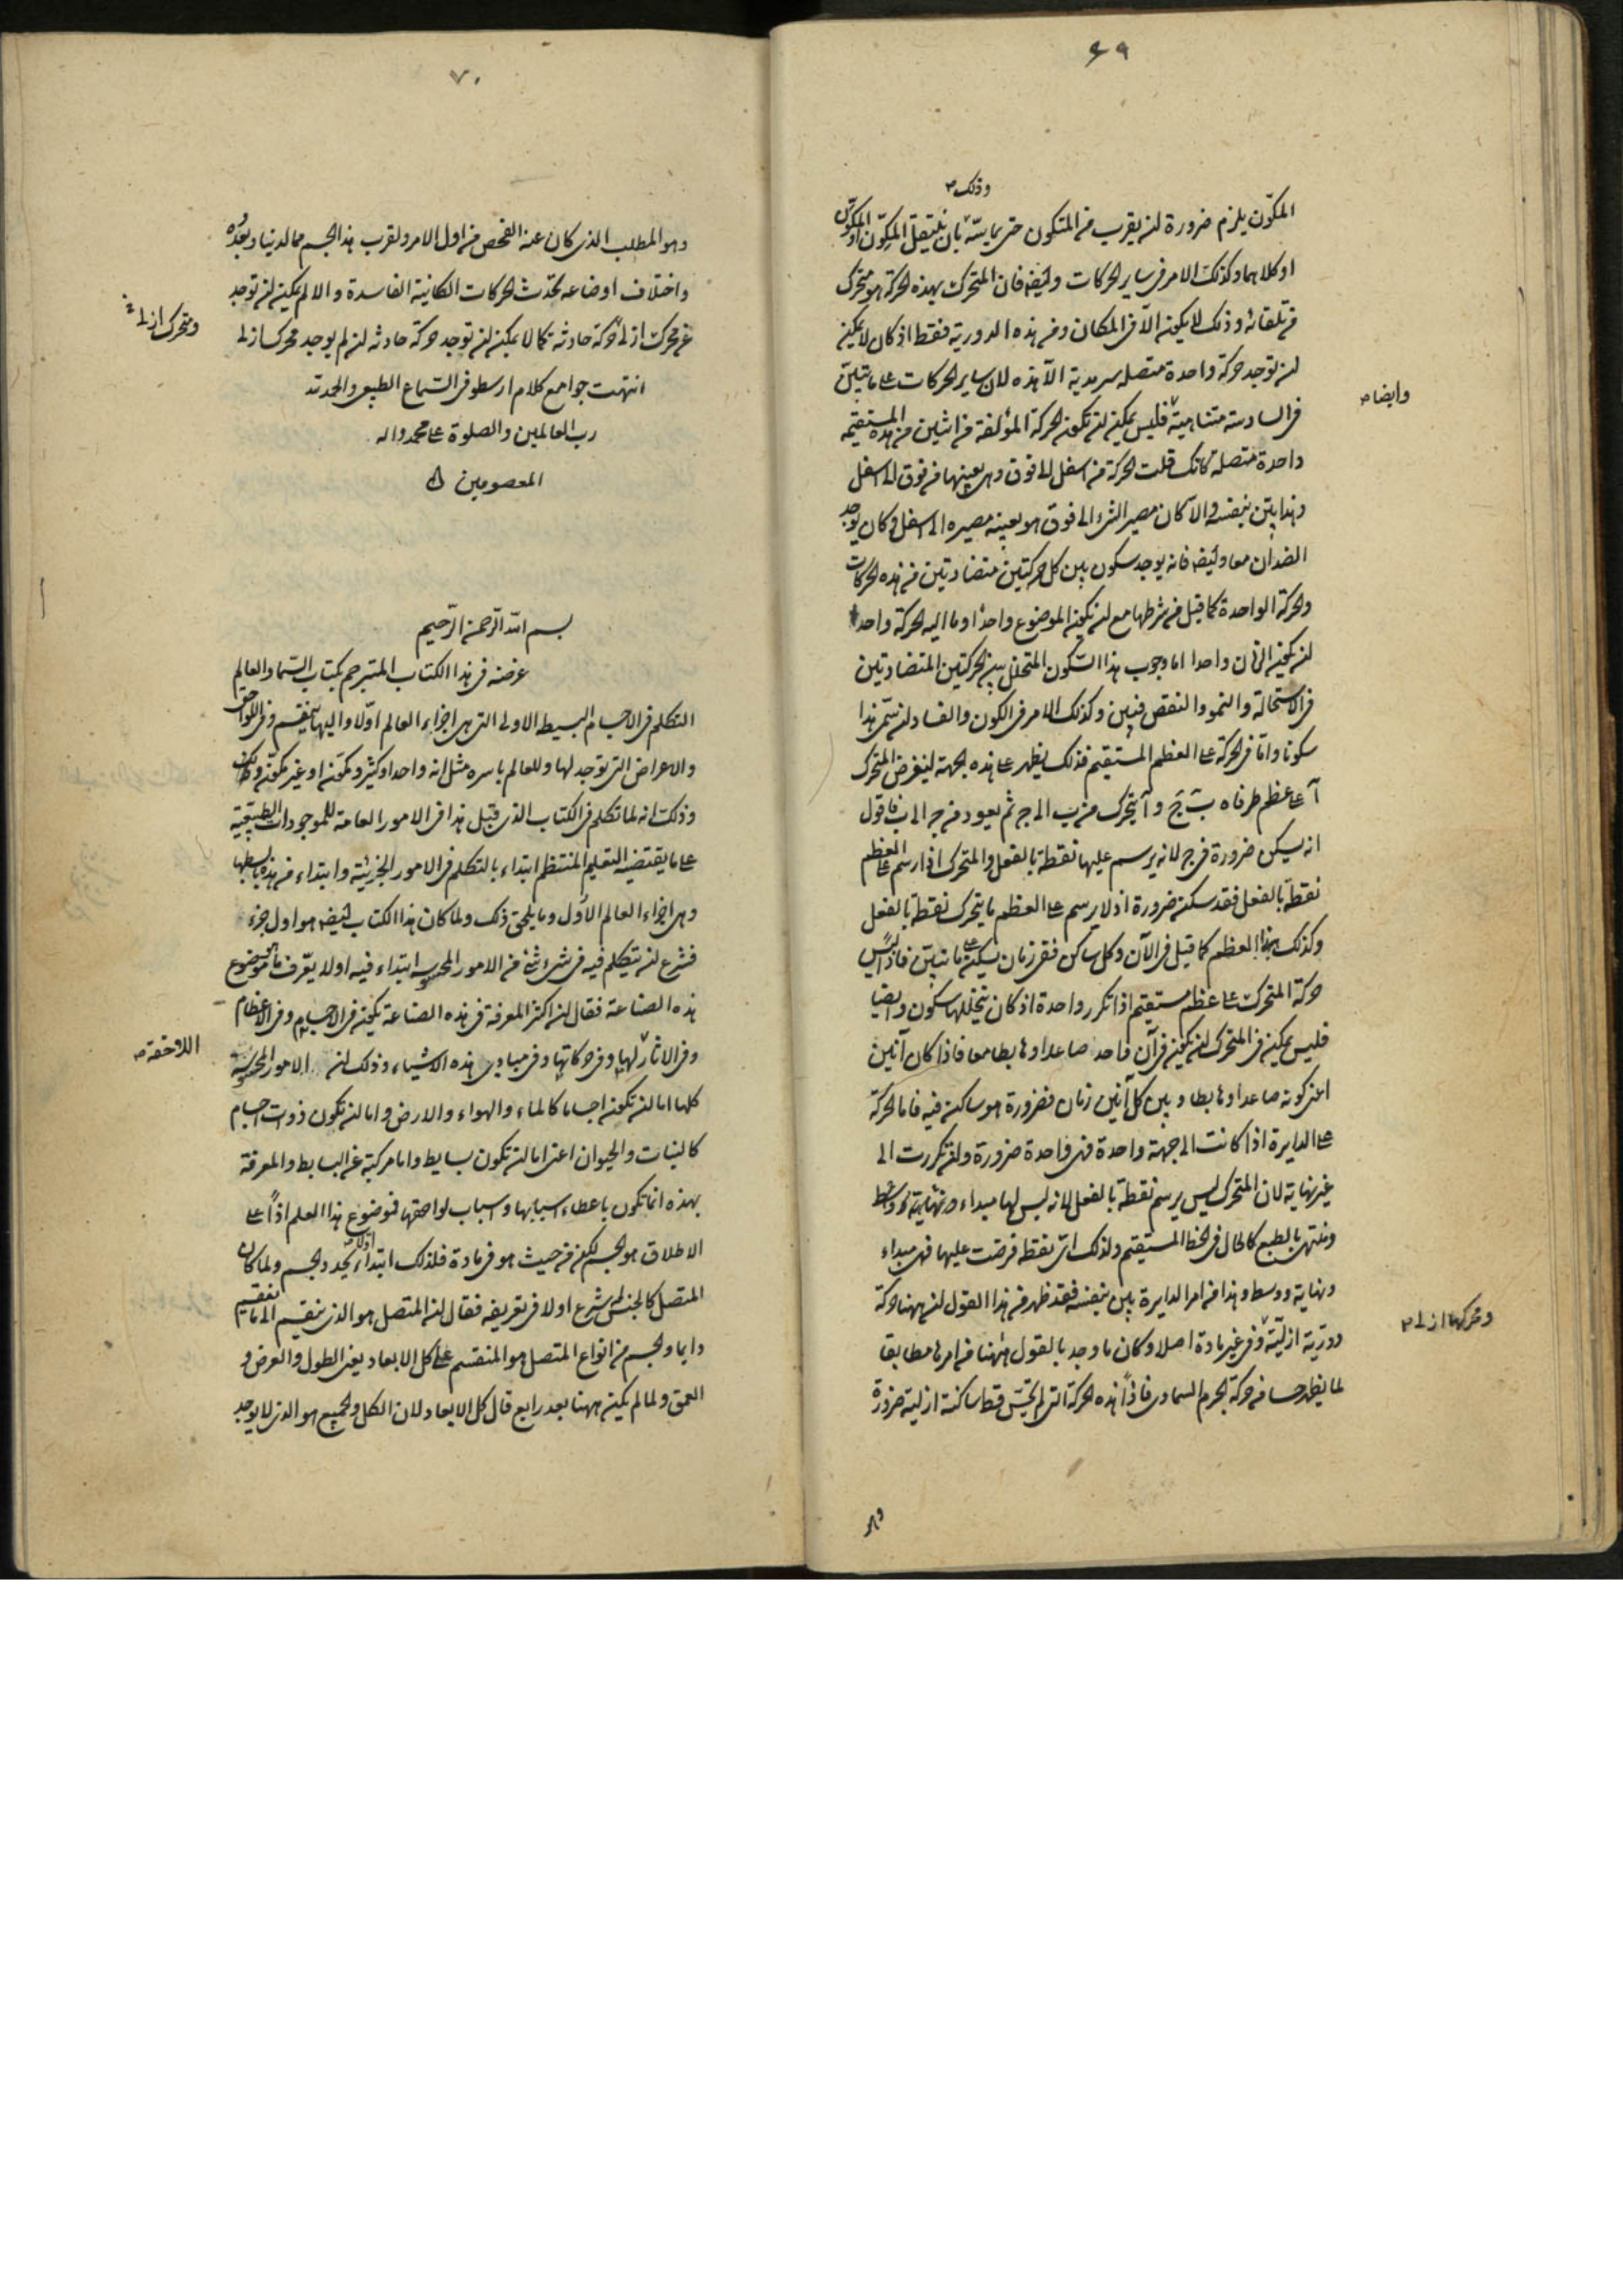 ٦٩
وذلك ص
المكوّن يلزم ضرورة ان يقرب من المتكون حتى يماسّه بان ينتقل المكوّن او المتكوّن
او كلاهما وكذلك الامر فى ساير الحركات وايضه فان المتحرك بهذه الحركة هو متحرك
من تلقائه وذلك لا يكون الّا فى المكان وفى هذه الدورية فقط اذ كان لا يمكن
ان توجد حركة واحدة متصله سرمدية الّا هذه لان ساير الحركات على ما تبيّن
وايضا ص
فى السادسة متناهية فليس يمكن ان تكون الحركة المؤلفة من اثنين من هذه المستقيمه
واحدة متصله كانك قلت الحركة من اسفل الى فوق وهى بعينها من فوق الى اسفل
وهذا بيّن بنفسه والا كان مصير الشىء الى فوق هو بعينه مصيره الى اسفل وكان يوجد
الضدان معا وايضه فانه يوجد سكون بين كل حركتين متضادتين من هذه الحركات
والحركة الواحدة كما قيل من شرطها مع ان يكون الموضوع واحدا وما اليه الحركة واحدا
ان يكون الزمان واحدا اما وجوب هذا السّكون المتخلل بين الحركتين المتضادتين
فى الاستحالة والنمو والنقص فبيّن وكذلك الامر فى الكون والفساد ان سمّى هذا
سكونا وامّا فى الحركة على العظم المستقيم فذلك يظهر على هذه الجهة ليفرض المتحرك
آ على عظم طرفاه ب ج وآ يتحرك من ب الى ج ثم يعود من ج الى ب فاقول
انه يسكن ضرورة فى ج لانه يرسم عليها نقطة بالفعل والمتحرك اذا رسم على العظم
نقطة بالفعل فقد سكن ضرورة اذ لا يرسم على العظم ما يتحرك نقطة بالفعل
وكذلك بهذا العظم كما قيل فى الآن وكل ساكن ففى زمان يسكن على ما تبيّن فاذاً ليس
حركة المتحرك على عظم مستقيم اذا تكرر واحدة اذ كان يتخللها سكون وايضا
فليس يمكن فى المتحرك ان يكون فى آن واحد صاعدا وهابطا معا فاذا كان آنين
اعنى كونه صاعدا وهابطا وبين كل آنين زمان فضرورة هو ساكن فيه فاما الحركة
على الدايرة اذا كانت الى جهة واحدة فهى واحدة ضرورة وان تكررت الى
غير نهاية لان المتحرك ليس يرسم نقطة بالفعل لانه ليس لها مبداء ونهاية ووسط
ومنتهى بالطبع كالحال فى الخط المستقيم ولذلك اىّ نقطه فرضت عليها فهى مبداء
ونهاية ووسط وهذا من امر الدايرة بيّن بنفسه فقد ظهر من هذا القول ان ههنا حركة
ومحركها ازلى ص
دوريّة ازليّة وفى غير مادة اصلا وكان ما وجد بالقول ههنا من امرها مطابقا
لما يظهر حسا من حركة الجرم السماوى فاذاً هذه الحركة التى لم تحسّ قط ساكنة ازلية ضرورة
وهو
٧٠
وهو المطلب الذى كان عنه الفحص من اول الامر ولقرب هذا الجسم مما لدينا وبُعدُه
واختلاف اوضاعه تحدث الحركات الكاينة الفاسدة والا لم يمكن ان توجد
ومتحرك ازلى
عن محرك ازلى حركة حادثة كما لا يمكن ان توجد حركة حادثه ان لم يوجد محرك ازلى
انتهت جوامع كلام ارسطو فى السّماع الطبيعى والحمد لله
رب العالمين والصلوة على محمد واله
المعصومين
بسم الله الرّحمن الرّحيم
غرضه فى هذا الكتاب المترجم بكتاب السّما والعالم
التكلم فى الاجسام البسيط الاولى التى هى اجزاء العالم اوّلا واليها ينقسم وفى اللواحق
والاعراض التى توجد لها وللعالم باسره مثل انه واحد او كثير ومكوّن او غير مكوّن
وذلك انه لما تكلم فى الكتاب الذى قبل هذا فى الامور العامة للموجودات الطبيعية
على ما يقتضيه التعليم المنتظم ابتداء بالتكلم فى الامور الجزئية وابتداء من هذه بابسطها
وهى اجزاء العالم الاول وما يلحق ذلك ولما كان هذا الكتاب ايضه هو اول جزء
فشرع ان يتكلم فيه فى شىء شىء من الامور المحسوسه ابتداء فيه اولا يعرف ما موضوع
هذه الصناعة فقال ان اكثر المعرفة فى هذه الصناعة يكون فى الاجسام وفى الاعظام
اللاحقة ص
وفى الاثار لها وفى حركاتها وفى مبادى هذه الاشياء وذلك ان الامور المحسوسه
كلها اما ان تكون اجساما كالماء والهواء والارض واما ان تكون ذوات اجسام
كالنبات والحيوان اعنى اما ان تكون بسايط واما مركبة عن البسايط والمعرفة
بهذه انما تكون باعطاء اسبابها واسباب لواحقها فموضوع هذا العلم اذاً على
الاطلاق هو الجسم لكن من حيث هو فى مادة فلذلك ابتداء اولا يحدد الجسم ولما كان
المتصل كالجنس له شرع اولا فى تعريفه فقال ان المتصل هو الذى ينقسم الى ما ينقسم
دايما والجسم من انواع المتصل هو المنقسم على كل الابعاد يعنى الطول والعرض و
العمق ولما لم يكن ههنا بعد رابع قال كل الابعاد لان الكل والجميع هو الذى لا يوجد